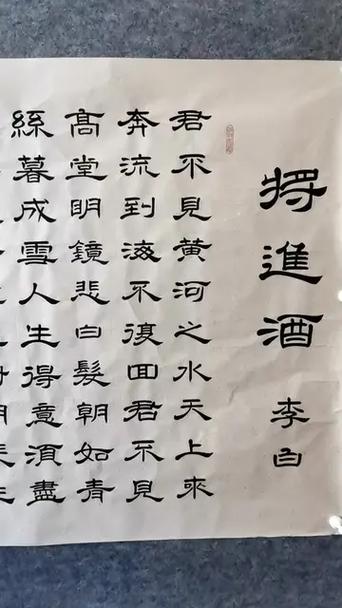 將進酒
李白
君不見黃河之水天上來
奔流到海不復回君不見
髙堂明鏡悲白髮朝如青
絲暮成雪人生得意須盡